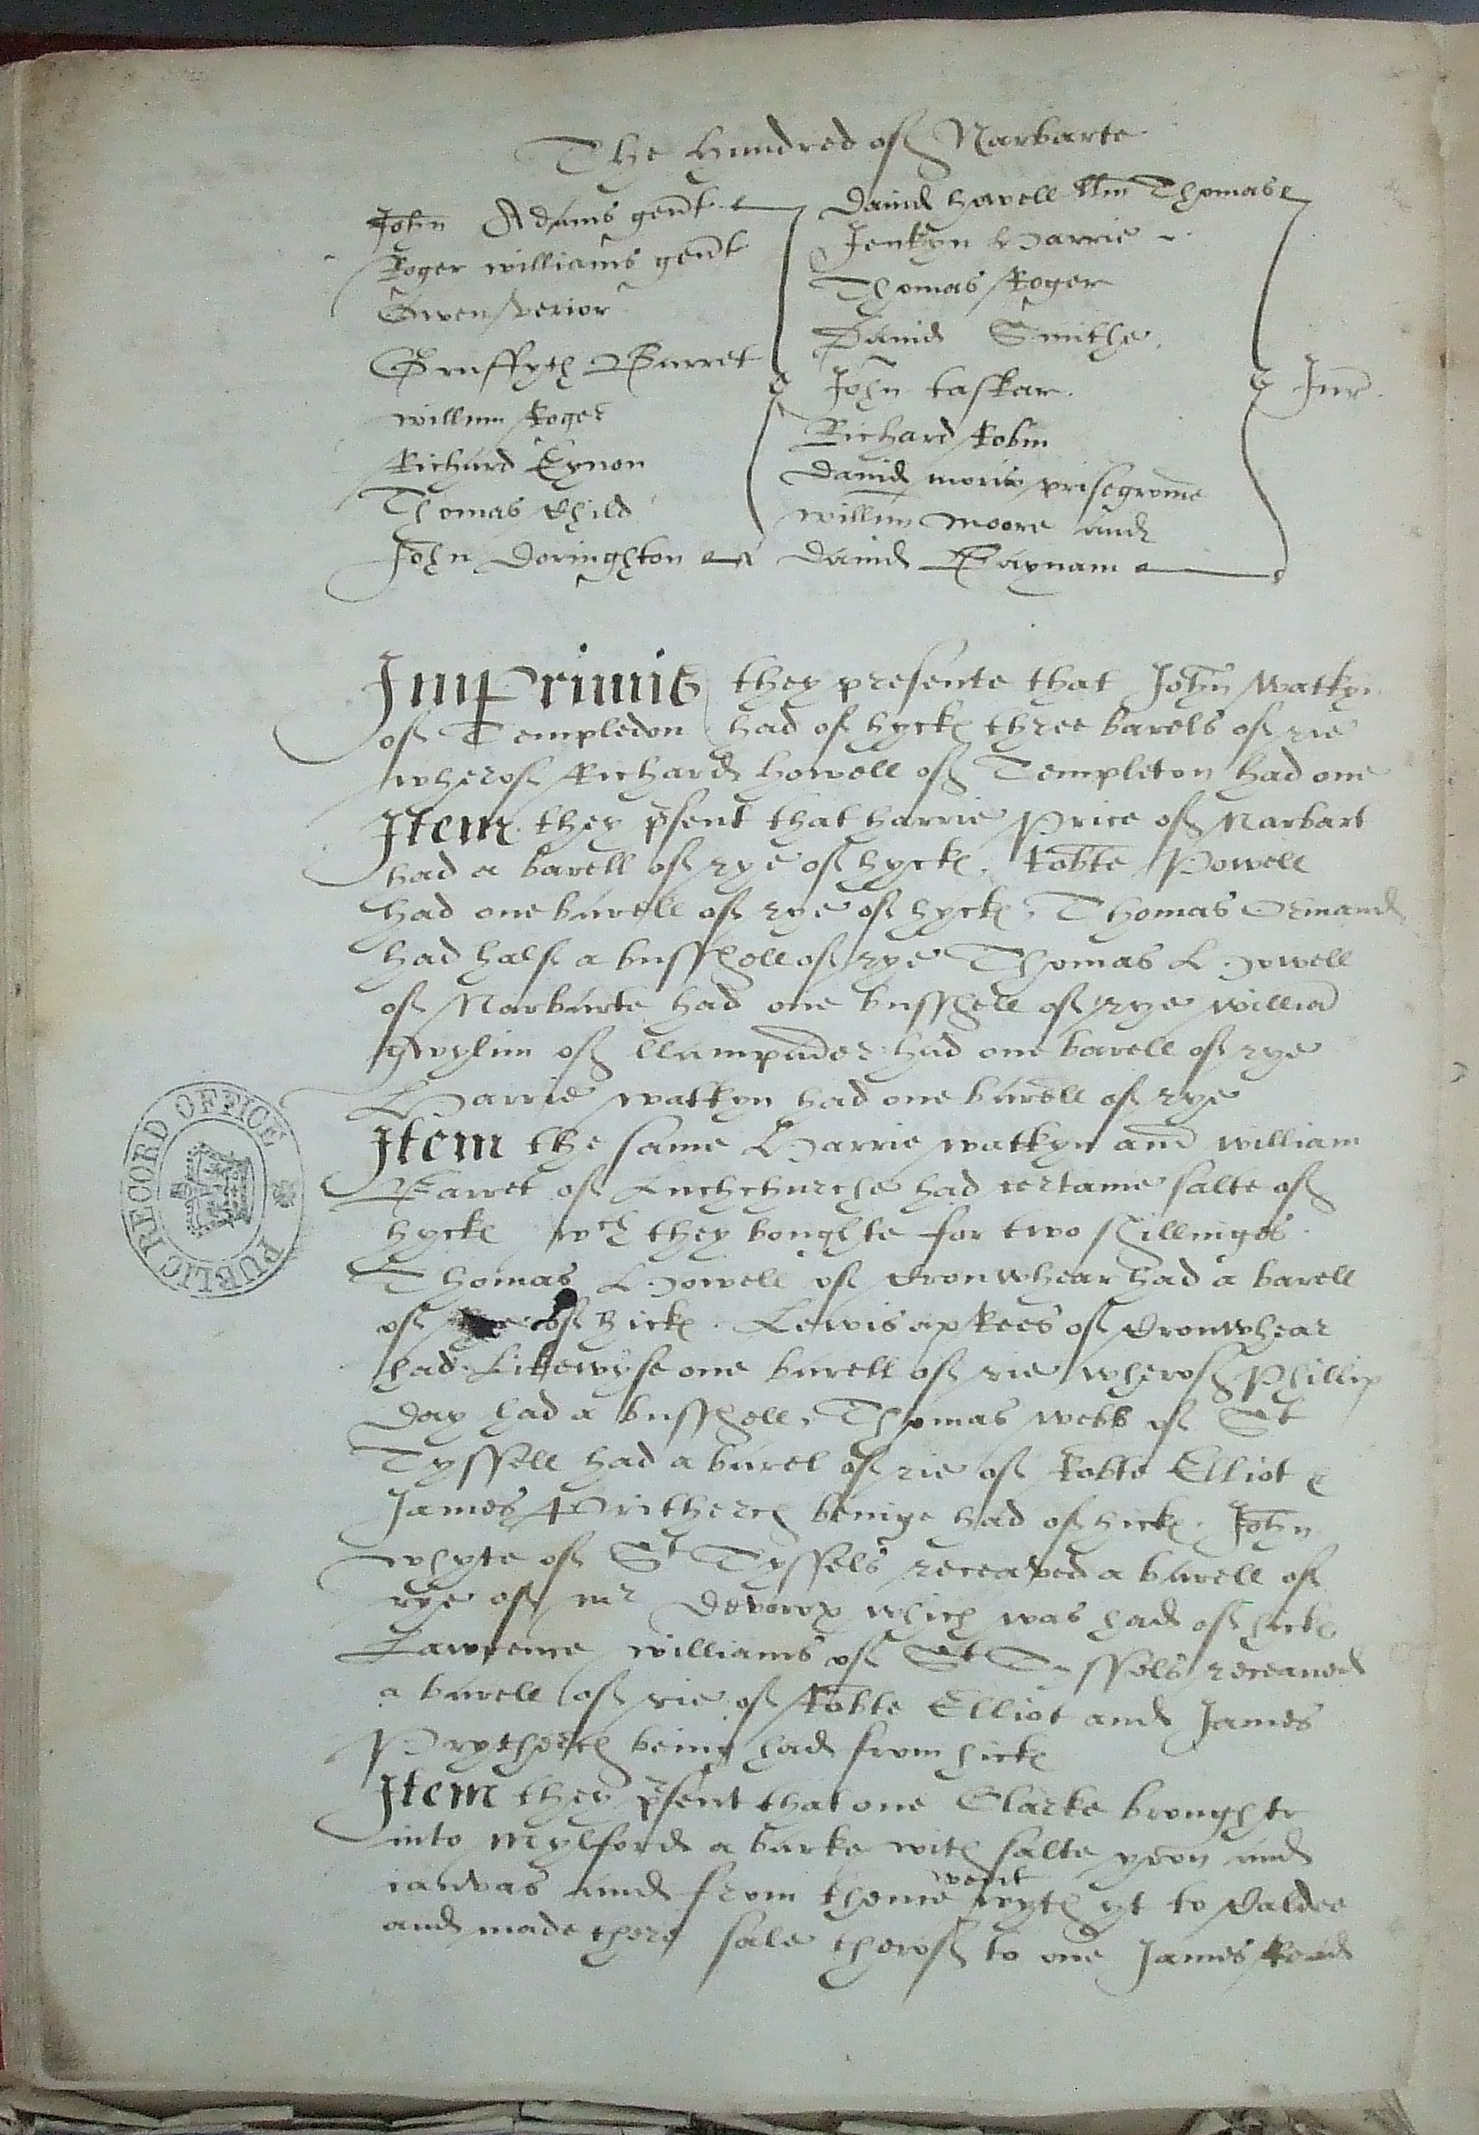 The hundred of Narbarte
John Adams gent
Roger williams gent
Owen Perior
Gruffyth Barret
willum Roger
Richard Eynon
Thomas Child
John Doringhton
David howell Thomas
Jenkyn Harrie
Thomas Roger
David Smithe
John taskar
Richard Robin
David moris prisegrome
willum moore and
David Baynam
Jur
Imprimis they presente that John Watkyn
of Templedon had of hyck three barels of rie
wherof Richard howell of Templeton had one
Item they psent that harrie Price of Narbart
had a barell of rye of hyck. Robte Powell
had one barell of rye of hyck. Thomas Ormand
had half a busshell of rye Thomas Howell
of Narbarte had one busshell of rye willia
gwylim of llampader had one barell of rye
Harrie watkyn had one barell of rye
Item the same Harrie watkyn and william
Barret of Luchchurche had certaine salte of
hyck wch they boughte for two shillinges
Thomas Howell of Cronwhear had a barell
of rye of hick. Lewis ap Rees of Cronwhear
had likewyse one barell of rie wherof Phillip
Day had a busshell, Thomas webb of St
Tyssell had a barel of rie of Robte Elliot &
James Pritherch beinge had of hick. John
whyte of St Tyssels receaved a barell of
rye of mr Devorox which was had of hick
Lawrence williams of St Tyssels receaved
a barell of rie of Robte Elliot and James
Prytherch being had from hick
Item they psent that one Clarke broughte
into Mylford a barke with salte yron and
canvas and from thence went wyth yt to Caldee
and made there sale therof to one James Read
PUBLIC RECORD OFFICE